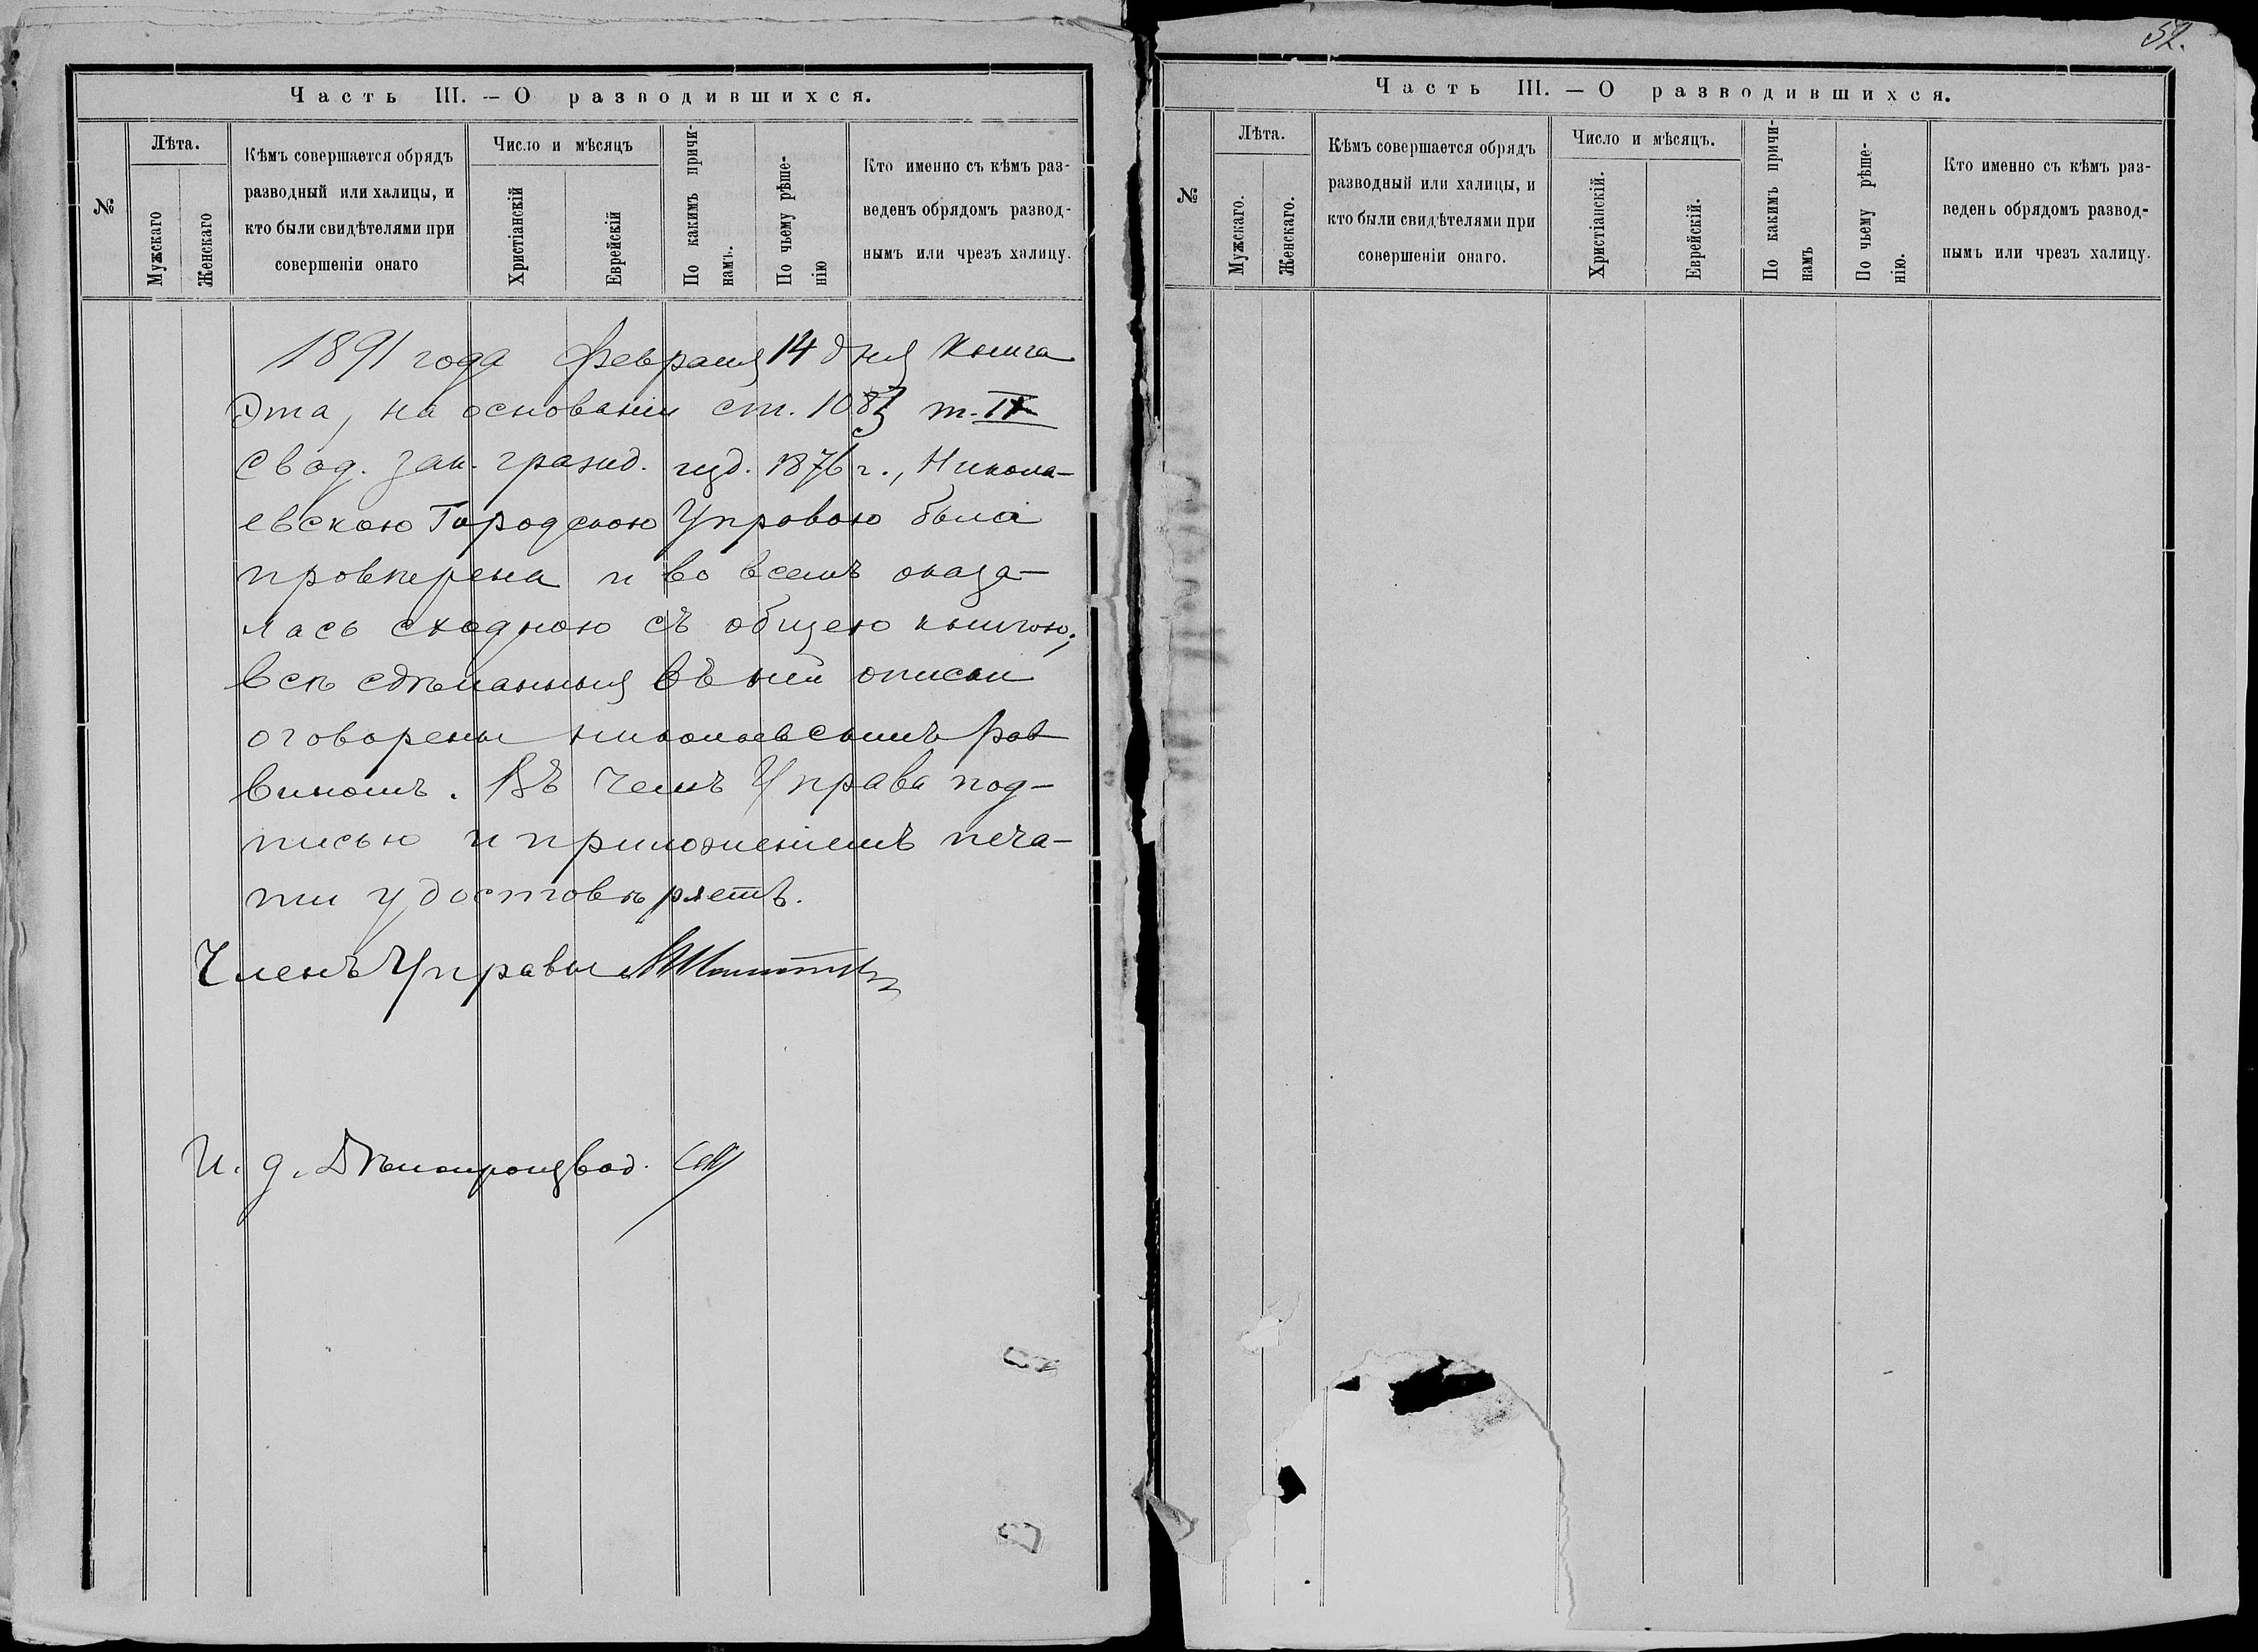 Часть III. — О разводившихся.
№
Лѣта.
Мужскаго
Женскаго
Кѣмъ совершается обрядъ
разводный или халицы, и
кто были свидѣтелями при
совершеніи онаго
Число и мѣсяцъ
Христіанскій
Еврейскій
По какимъ причи-
намъ.
По чьему рѣше-
нію
Кто именно съ кѣмъ раз-
веденъ обрядомъ развод-
нымъ или чрезъ халицу.
1891 года февраля 14 дня книга
эта, на основаніи ст. 1083 т. IX
Свод. зак. гражд. изд. 1876 г., Никола-
евскою Городскою Управою была
провѣрена и во всемъ оказа-
лась сходною съ общею книгою;
всѣ сдѣланныя въ ней описки
оговорены николаевскимъ рав
виномъ. Въ чемъ Управа под-
писью и приложеніемъ печа-
ти удостовѣряетъ.
Членъ Управы
И. д. Дѣлопроизвод.
52.
Часть III. — О разводившихся.
№
Лѣта.
Мужскаго.
Женскаго.
Кѣмъ совершается обрядъ
разводный или халицы, и
кто были свидѣтелями при
совершеніи онаго.
Число и мѣсяцъ.
Христіанскій.
Еврейскій.
По какимъ причи-
намъ
По чьему рѣше-
нію.
Кто именно съ кѣмъ раз-
веденъ обрядомъ развод-
нымъ или чрезъ халицу.